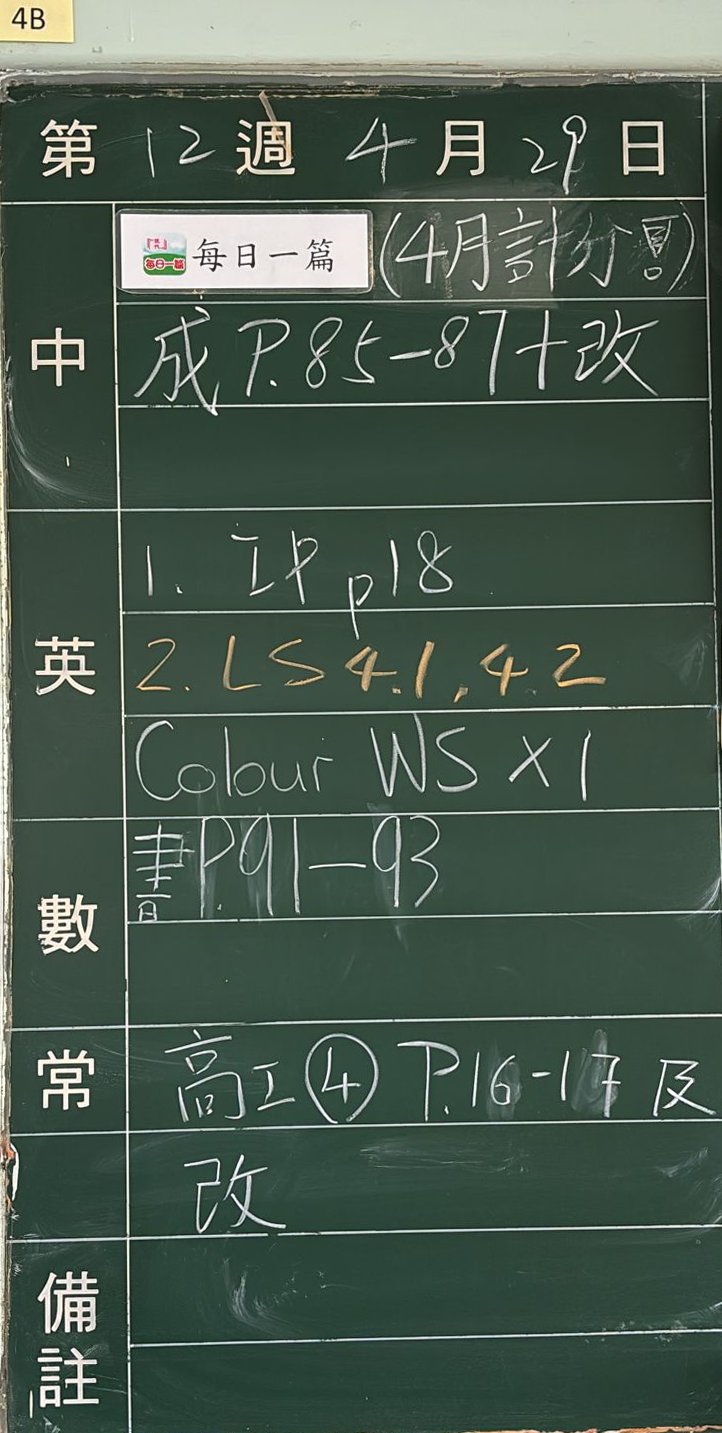 4B
第 12 週 4 月 29 日
每日一篇 每日一篇 (4月計分頁!)
中
成 P.85-87+改
1. IP p18
英
2. LS 4.1, 4.2
Colour WS X1
書P.91-93
數
常 高工④ P.16-17 及
改
備註